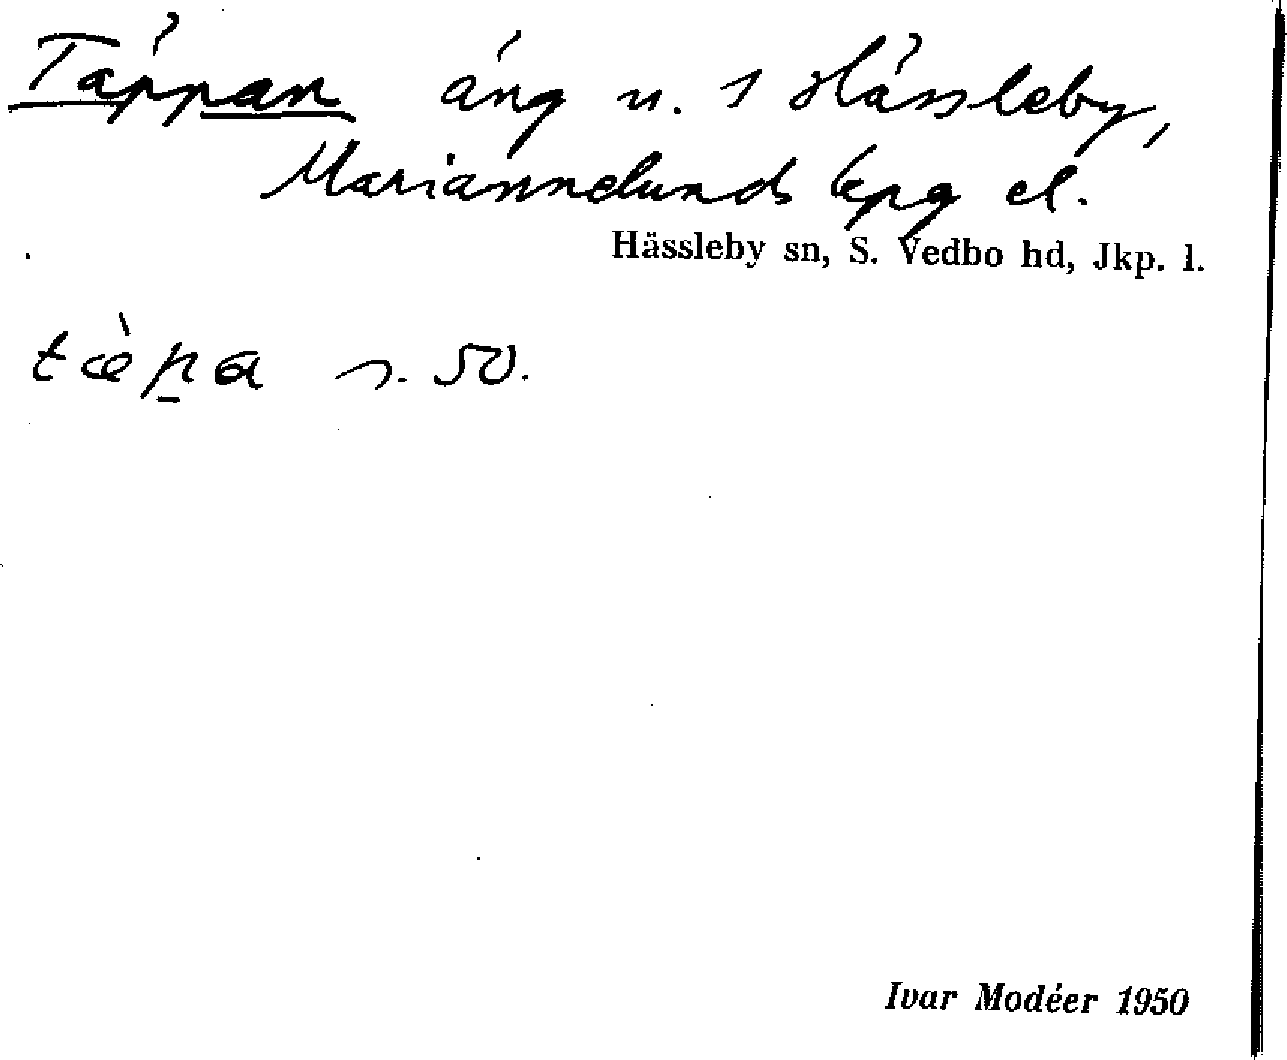 Täppan äng u. 1 Hässleby,
Mariannelunds kpg el.
Hässleby sn, S. Vedbo hd, Jkp. l.
tæ̀p̠a s. 50.
Ivar Modéer 1950